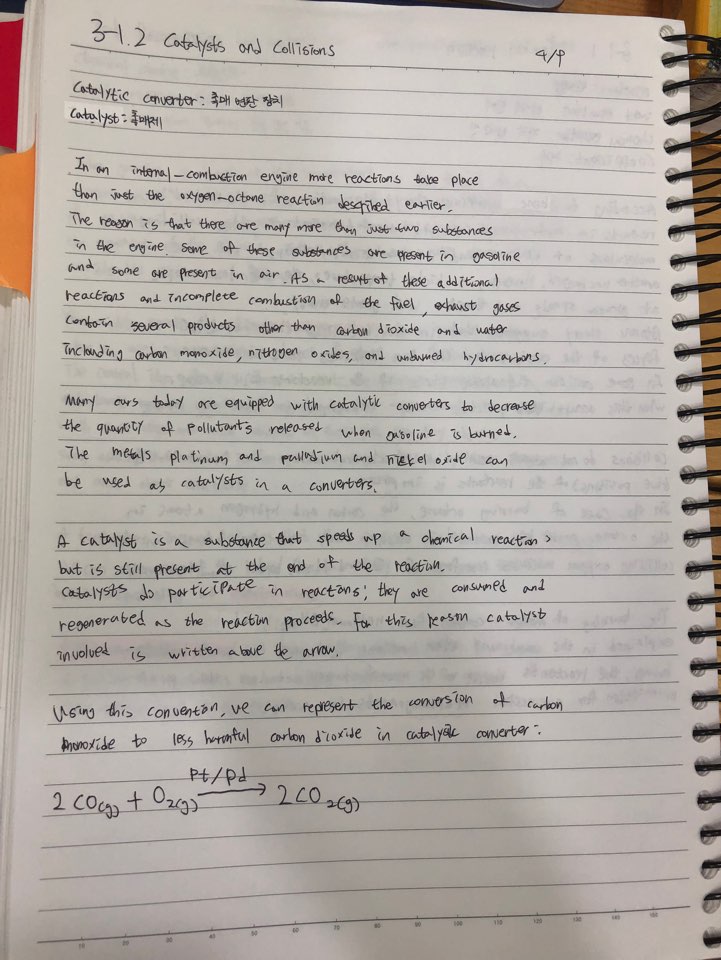 3-1.2 Catalysts and Collisions 4/9
Catalytic converter : 촉매 변환 장치
Catalyst : 촉매제
In an internal-combustion engine more reactions take place
than just the oxygen-octane reaction described earlier.
The reason is that there are many more than just two substances
in the engine. some of these substances are present in gasoline
and some are present in air. As a result of these additional
reactions and incomplete combustion of the fuel, exhaust gases
contain several products other than carbon dioxide and water
including carbon monoxide, nitrogen oxides, and unburned hydrocarbons.
Many cars today are equipped with catalytic converters to decrease
the quantity of pollutants released when gasoline is burned.
The metals platinum and palladium and nickel oxide can
be used as catalysts in a converters.
A catalyst is a substance that speeds up a chemical reaction,
but is still present at the end of the reaction.
Catalysts do participate in reactions; they are consumed and
regenerated as the reaction proceeds. For this reason catalyst
involved is written above the arrow.
Using this convention, we can represent the conversion of carbon
monoxide to less harmful carbon dioxide in catalytic converter:
Pt/Pd
2 CO(g) + O2(g) → 2CO2(g)
10 20 30 40 50 60 70 80 90 100 110 120 130 140 150